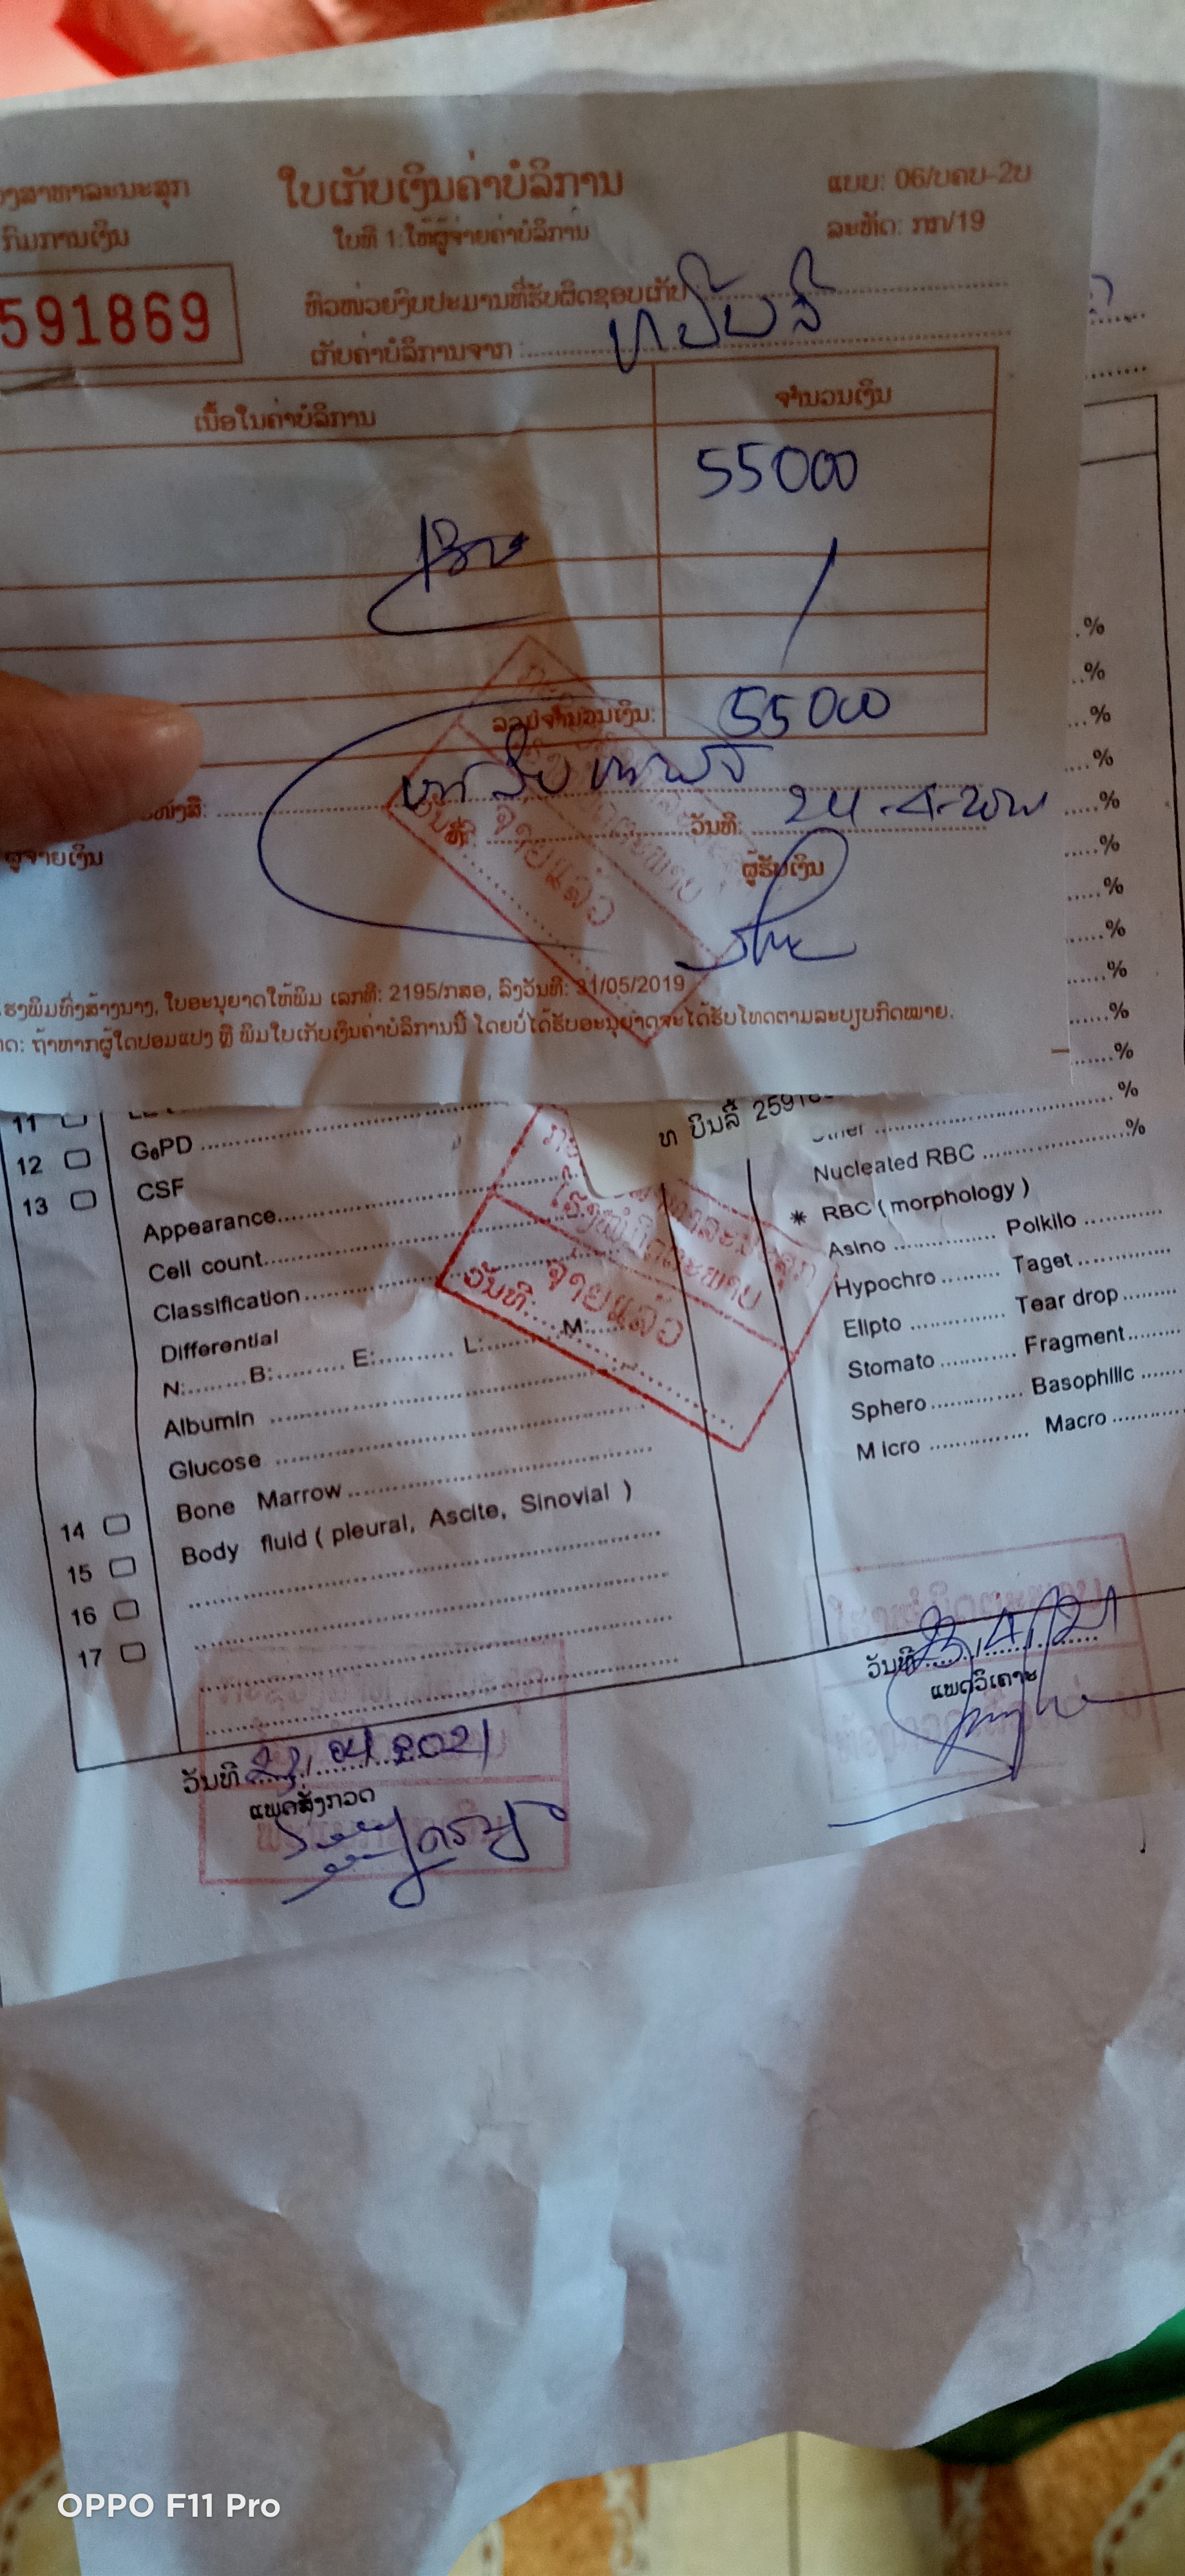 ໃບເກັບເງິນຄ່າບໍລິການ
ແບບ: 06/ບຄບ-2ບ
ກົມການເງິນ
ໃບທີ 1:ໃຫ້ຜູ້ຈ່າຍຄ່າບໍລິການ
ລະຫັດ: ກກ/19
591869
ຫົວໜ່ວຍງົບປະມານທີ່ຮັບຜິດຊອບເກັບ
ເກັບຄ່າບໍລິການຈາກ : ທ ບິນລີ້
ເນື້ອໃນຄ່າບໍລິການ
ຈຳນວນເງິນ
55000
ລວມຈຳນວນເງິນ: 55000
ວັນທີ: 24-4-
ຜູ້ຈ່າຍເງິນ
ຜູ້ຮັບເງິນ
ວັນທີ:
ຈ່າຍແລ້ວ
ໃບອະນຸຍາດໃຫ້ພິມ ເລກທີ: 2195/ກສອ, ລົງວັນທີ: 31/05/2019
ຖ້າຫາກຜູ້ໃດປອມແປງ ຫຼື ພິມໃບເກັບເງິນຄ່າບໍລິການນີ້ ໂດຍບໍ່ໄດ້ຮັບອະນຸຍາດຈະໄດ້ຮັບໂທດຕາມລະບຽບກົດໝາຍ.
%
%
%
%
%
%
%
%
%
%
%
ທ ບິນລີ້ 25918
11
12 G6PD
13 CSF
Appearance
Cell count
Classification
Differential
N: B: E: L: M:
Albumin
Glucose
14 Bone Marrow
15 Body fluid ( pleural, Ascite, Sinovial )
16
17
Other %
Nucleated RBC %
* RBC ( morphology )
Asino Polkilo
Hypochro Taget
Elipto Tear drop
Stomato Fragment
Sphero Basophilic
Micro Macro
ວັນທີ: ຈ່າຍແລ້ວ
ວັນທີ 23/4/21
ແພດວິເຄາະ
ວັນທີ 23/04/2021
ແພດສັ່ງກວດ
OPPO F11 Pro